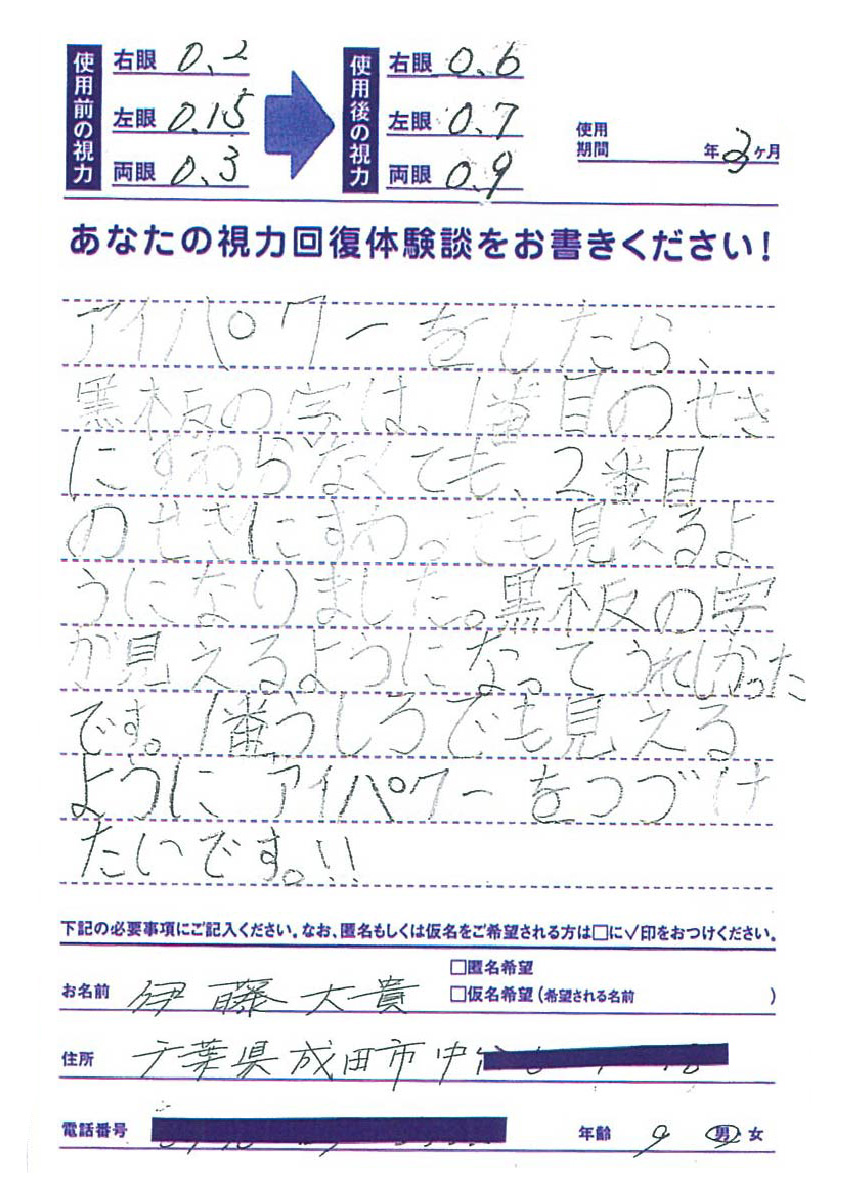 使用前の視力
右眼 0.2
左眼 0.15
両眼 0.3
使用後の視力
右眼 0.6
左眼 0.7
両眼 0.9
使用期間 年 3ヶ月
あなたの視力回復体験談をお書きください!
アイパワーをしたら、
黒板の字は、1番目のせき
にすわらなくても、2番目
のせきにすわっても見えるよ
うになりました。黒板の字
が見えるようになってうれしかった
です。1番うしろでも見える
ようにアイパワーをつづけ
たいです。!!
下記の必要事項にご記入ください。なお、匿名もしくは仮名をご希望される方は□に✓印をおつけください。
お名前 伊藤大貴
□匿名希望
□仮名希望(希望される名前 )
住所 千葉県成田市中
電話番号
年齢 9 男・女